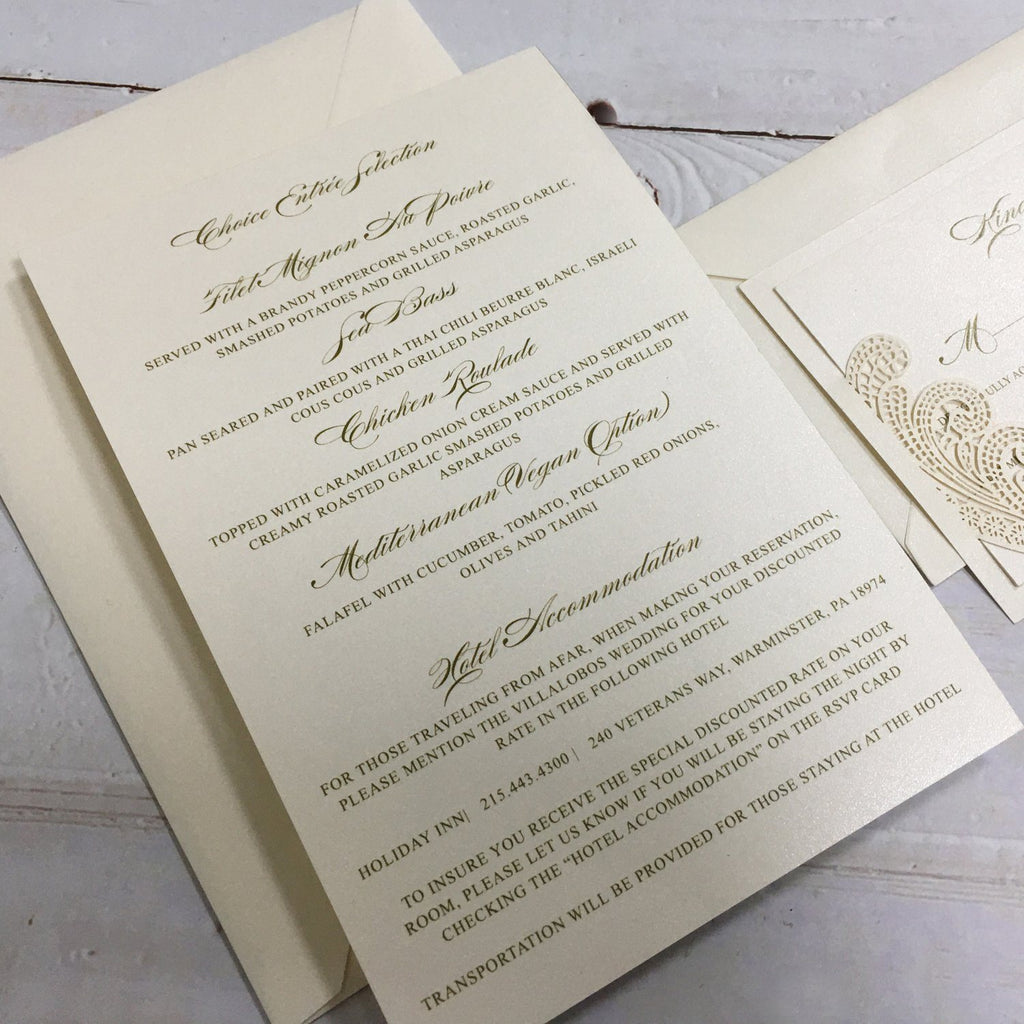 Choice Entrée Selection
Filet Mignon Au Poivre
SERVED WITH A BRANDY PEPPERCORN SAUCE, ROASTED GARLIC,
SMASHED POTATOES AND GRILLED ASPARAGUS
Sea Bass
PAN SEARED AND PAIRED WITH A THAI CHILI BEURRE BLANC, ISRAELI
COUS COUS AND GRILLED ASPARAGUS
Chicken Roulade
TOPPED WITH CARAMELIZED ONION CREAM SAUCE AND SERVED WITH
CREAMY ROASTED GARLIC SMASHED POTATOES AND GRILLED
ASPARAGUS
Mediterranean Vegan Option)
FALAFEL WITH CUCUMBER, TOMATO, PICKLED RED ONIONS,
OLIVES AND TAHINI
Hotel Accommodation
FOR THOSE TRAVELING FROM AFAR, WHEN MAKING YOUR RESERVATION,
PLEASE MENTION THE VILLALOBOS WEDDING FOR YOUR DISCOUNTED
RATE IN THE FOLLOWING HOTEL
HOLIDAY INN| 215.443.4300 | 240 VETERANS WAY, WARMINSTER, PA 18974
TO INSURE YOU RECEIVE THE SPECIAL DISCOUNTED RATE ON YOUR
ROOM, PLEASE LET US KNOW IF YOU WILL BE STAYING THE NIGHT BY
CHECKING THE “HOTEL ACCOMMODATION” ON THE RSVP CARD
TRANSPORTATION WILL BE PROVIDED FOR THOSE STAYING AT THE HOTEL
Kin
M